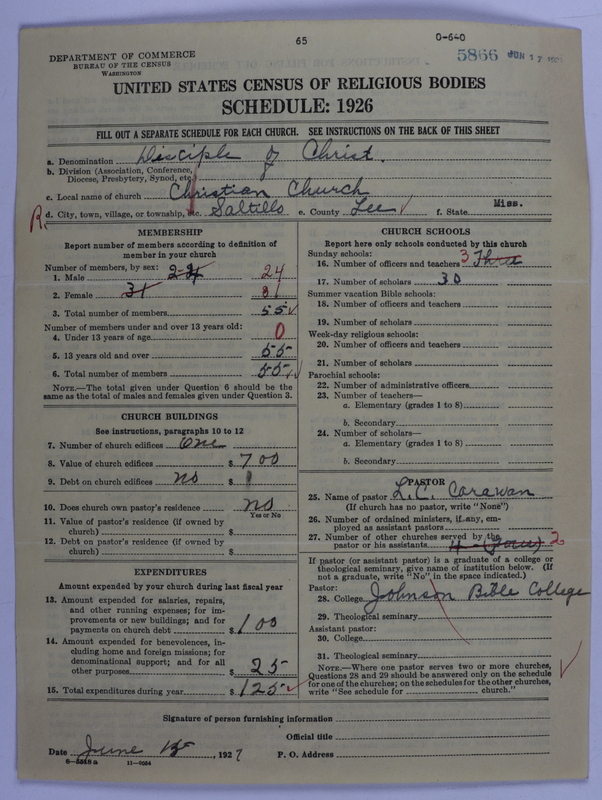 65
0-640
DEPARTMENT OF COMMERCE
BUREAU OF THE CENSUS
WASHINGTON
5866 JUN 17
UNITED STATES CENSUS OF RELIGIOUS BODIES
SCHEDULE: 1926
FILL OUT A SEPARATE SCHEDULE FOR EACH CHURCH. SEE INSTRUCTIONS ON THE BACK OF THIS SHEET
a. Denomination Disciple of Christ.
b. Division (Association, Conference, Diocese, Presbytery, Synod, etc.)
c. Local name of church Christian Church
R d. City, town, village, or township, etc. Saltillo e. County Lee f. State Miss.
MEMBERSHIP
Report number of members according to definition of
member in your church
Number of members, by sex:
1. Male 24 24
2. Female 31 31
3. Total number of members 55
Number of members under and over 13 years old:
4. Under 13 years of age 0
5. 13 years old and over 55
6. Total number of members 55
NOTE.—The total given under Question 6 should be
same as the total of males and females given under Question 3.
CHURCH BUILDINGS
See instructions, paragraphs 10 to 12
7. Number of church edifices One
8. Value of church edifices $ 700
9. Debt on church edifices no $
10. Does church own pastor's residence? no
Yes or No
11. Value of pastor's residence (if owned by
church) $
12. Debt on pastor's residence (if owned by
church) $
EXPENDITURES
Amount expended by your church during last fiscal year
13. Amount expended for salaries, repairs,
and other running expenses; for im-
provements or new buildings; and for
payments on church debt $ 100
14. Amount expended for benevolences, in-
cluding home and foreign missions; for
denominational support; and for all
other purposes $ 25
15. Total expenditures during year $ 125
CHURCH SCHOOLS
Report here only schools conducted by this church
Sunday schools:
16. Number of officers and teachers 3 Three
17. Number of scholars 30
Summer vacation Bible schools:
18. Number of officers and teachers
19. Number of scholars
Week-day religious schools:
20. Number of officers and teachers
21. Number of scholars
Parochial schools:
22. Number of administrative officers
23. Number of teachers—
a. Elementary (grades 1 to 8)
b. Secondary
24. Number of scholars—
a. Elementary (grades 1 to 8)
b. Secondary
PASTOR
25. Name of pastor L. C. Carawan
(If church has no pastor, write "None")
26. Number of ordained ministers, if any, em-
ployed as assistant pastors
27. Number of other churches served by the
pastor or his assistants 4 - (Four) 2
If pastor (or assistant pastor) is a graduate of a college or
theological seminary, give name of institution below. (If
not a graduate, write "No" in the space indicated.)
Pastor:
28. College Johnson Bible College
29. Theological seminary
Assistant pastor:
30. College
31. Theological seminary
NOTE.—Where one pastor serves two or more churches,
Questions 28 and 29 should be answered only on the schedule
for one of the churches; on the schedules for the other churches,
write "See schedule for church."
Signature of person furnishing information
Official title
Date June 15, 1927 P. O. Address
8—5518a 11—9034